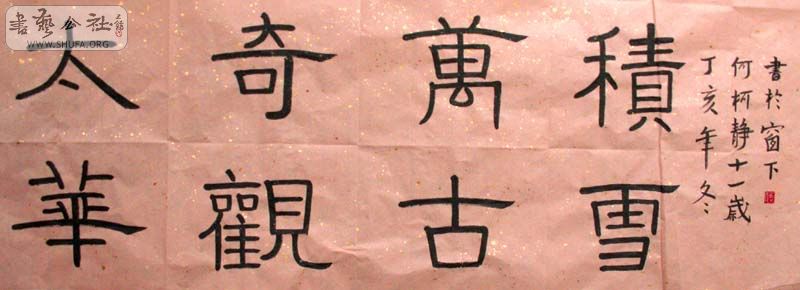 書藝公社
WWW.SHUFA.ORG
太華
奇觀
萬古
積雪
丁亥年冬
何柯静十一歲
書於窗下